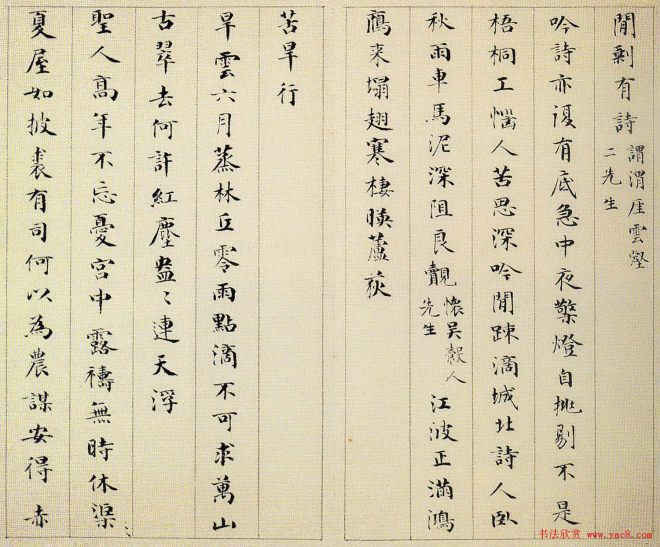 閒剩有詩謂渭厓雲壑二先生
吟詩亦復有底急中夜檠燈自挑剔不是
梧桐工惱人苦思深吟聞踈滴城北詩人臥
秋雨車馬泥深阻良覿懷吴穀人先生江波正滿鴻
鴈來塌翅寒棲暎蘆荻
苦旱行
旱雲六月蒸林丘零雨點滴不可求萬山
古翠去何許紅塵盎〻連天浮
聖人高年不忘憂宮中露禱無時休渠〻
夏屋如披裘有司何以為農謀安得赤
书法欣赏 www.yac8.com